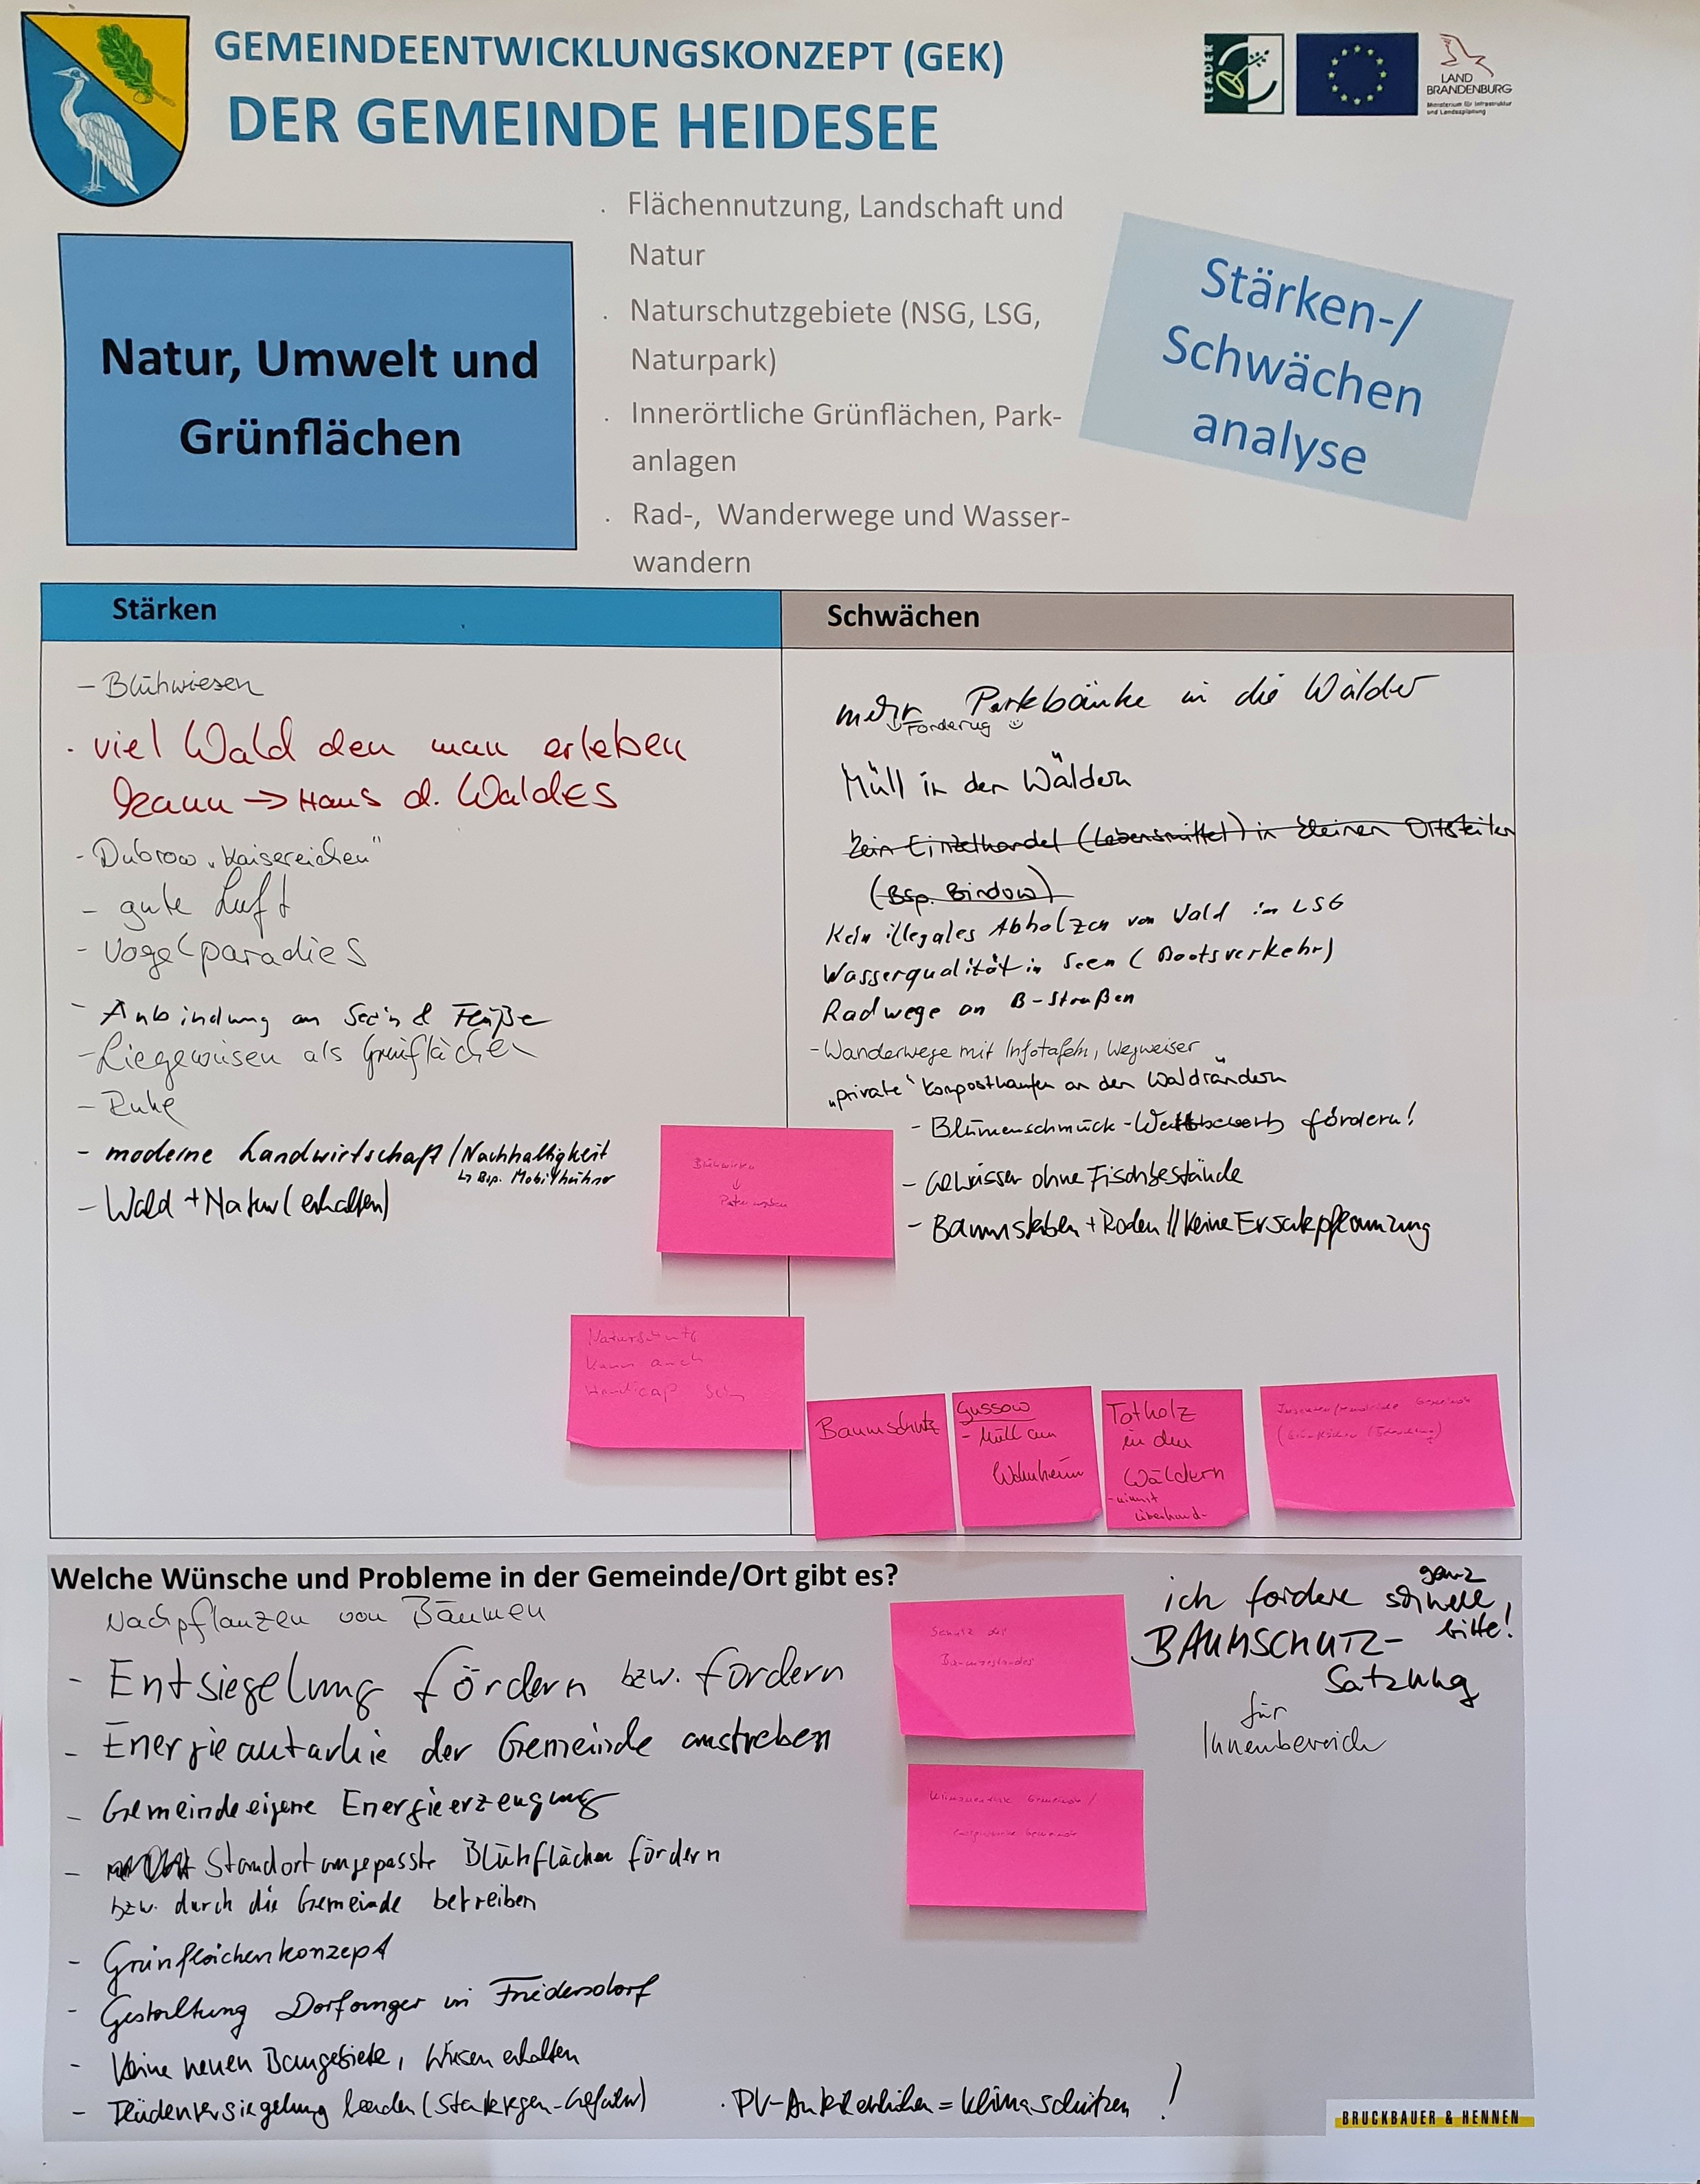 GEMEINDEENTWICKLUNGSKONZEPT (GEK)
DER GEMEINDE HEIDESEE
LEADER
LAND
BRANDENBURG
Ministerium für Infrastruktur
und Landesplanung
Natur, Umwelt und
Grünflächen
. Flächennutzung, Landschaft und
Natur
. Naturschutzgebiete (NSG, LSG,
Naturpark)
. Innerörtliche Grünflächen, Park-
anlagen
. Rad-, Wanderwege und Wasser-
wandern
Stärken-/
Schwächen
analyse
Stärken
- Blühwiesen
. viel Wald den man erleben
kann → Haus d. Waldes
- Dubrow „Kaisereichen"
- gute Luft
- Vogelparadies
- Anbindung an Seen & Flüße
- Liegewiesen als Grünflächen
- Ruhe
- moderne Landwirtschaft / Nachhaltigkeit
↳ Bsp. Mobilhühner
- Wald + Natur (erhalten)
Schwächen
mehr Parkbänke in die Wälder
Forderug ☺
Müll in den Wäldern
kein Einzelhandel (Lebensmittel) in kleinen Ortsteilen
(Bsp. Bindow)
Kein illegales Abholzen von Wald im LSG
Wasserqualität in Seen (Bootsverkehr)
Radwege an B-Straßen
- Wanderwege mit Infotafeln, Wegweiser
„private" Komposthaufen an den Waldrändern
- Blumenschmuck-Wettbewerb fördern!
- Gewässer ohne Fischbestände
- Baumsterben + Roden // keine Ersatzpflanzung
Blühwiesen
↓
Naturschutz
kann auch
Handicap sein
Baumschutz
Gussow
- Müll am
Wohnheim
Totholz
in den
Wäldern
- nimmt
überhand-
Welche Wünsche und Probleme in der Gemeinde/Ort gibt es?
Nachpflanzen von Bäumen
- Entsiegelung fördern bzw. fordern
- Energieautarkie der Gemeinde anstreben
- Gemeindeeigene Energieerzeugung
- Standortangepasste Blühflächen fördern
bzw. durch die Gemeinde betreiben
- Grünflächenkonzept
- Gestaltung Dorfanger in Friedersdorf
- Keine neuen Baugebiete, Wiesen erhalten
- beenden (Starkregen-Gefahr)
. = Klima schützen !
Schutz des
Baumbestandes
Klimaneutrale Gemeinde /
ich fordere ganz schnell,
bitte!
BAUMSCHUTZ-
Satzung
für
Innenbereich
BRUCKBAUER & HENNEN